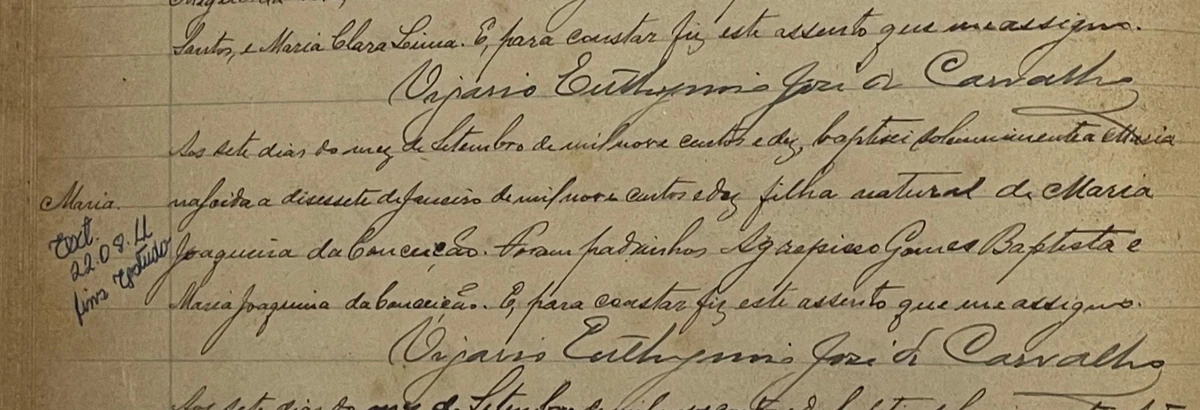 Santos, e Maria Clara Lima. E, para constar fiz este assento que me assigno.
Vigario Euthymio José de Carvalho
Aos sete dias do mez de Setembro de mil nove centos e dez, baptisei solemnimente a Maria
Maria.
nascida a disessete de Janeiro de mil nove centos e dez filha natural de Maria
Ext.
22.08.44
fins
Joaquina da Conceição. Foram padrinhos Agrepisso Gomes Baptista e
Maria Joaquina da Conceição. E, para constar fiz este assento que me assigno.
Vigario Euthymio José de Carvalho
Aos sete dias do mez de Setembro de mil